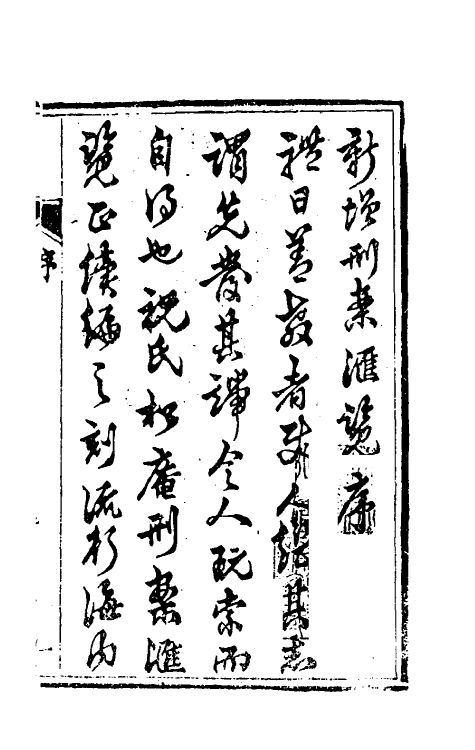 新增刑案匯覽序
禮曰善教者使人繼其志
謂先發其端令人玩索而
自得也祝氏松庵刑案匯
覽正續編之刻流行海內
序